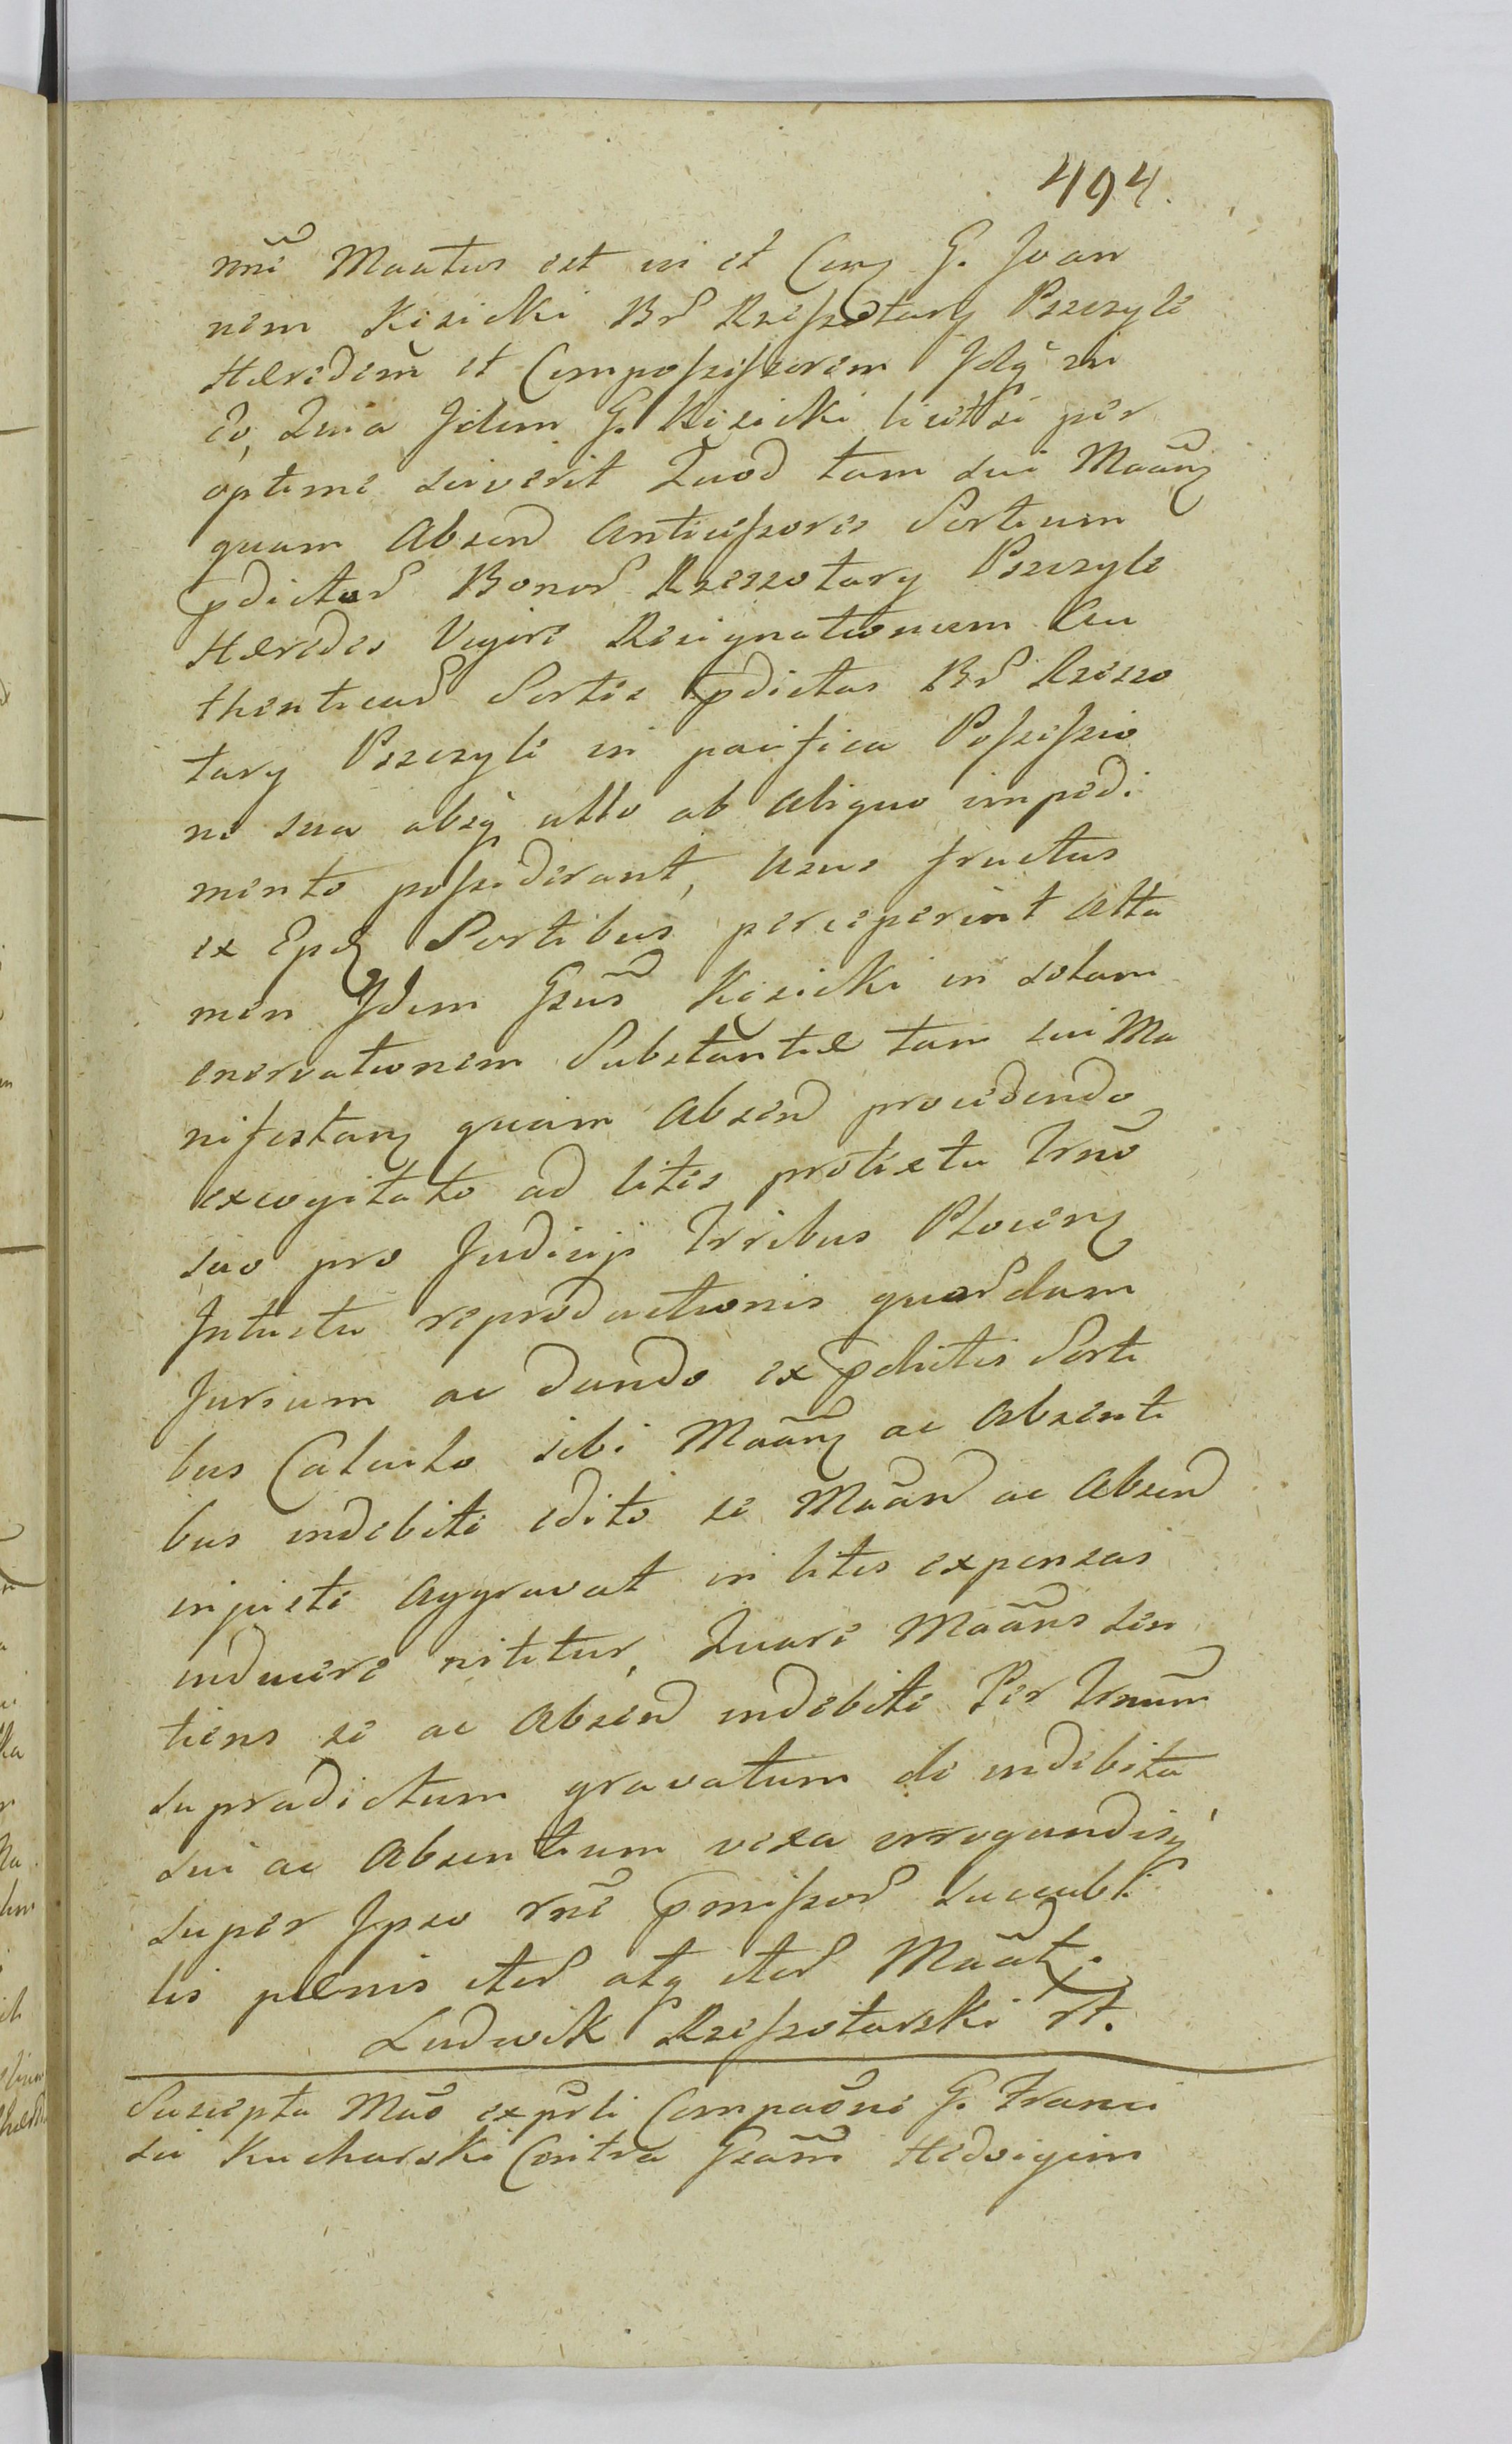 494.
nni Maatus est in et Cong G. Joan
nem Kisicki Br̃ Rzeszotary Pszczyle
Heredem et Compossessorem Idq in
eo, Quia Idem G. Kisicki licet si per
optime sciverit Quod tam sui Maãng
quam Absend Antecessores Sortium
pdictar Bonor Rzeszotary Pszczyle
Heredes Vigore Resignationum Au
thenticar Sortes pdictas Br Rzeszo
tary Pszczyle in pacifica Possessio
ne sua absq ullo ab aliquo impedi
mento possederant, usus fructus
ex Epdg Sortibus perceperint Atta
men Idem Gsus Kisicki in solam
enervationem Substantiæ tam sui Ma
nifestang quam Absend procedendo
excogitato ad lites protextu Trno
suo pro Judicijs Trribus Ploceng
Intuitu reproductionis quordam
Jurium ac dando ex pdictis Sorti
bus Calculo sibi Maang ac Absenti
bus indebite edito se Maand ac Absend
injuste Aggravat in lites expensas
inducere nititur, Quare Maans sen
tiens se ac Absend indebite Per Trnum
supradictum gravatum de indebita
sui ac Absentium vexa irrogandisq
super Ipso rne pmissor luculi
tis pænis iter atq iter Maat.
Ludwik Rzeszotarski rt.
Suscepta Mão ex parti Compaõni G. Franci
sci Kucharski Contra Gsam Hedvigim